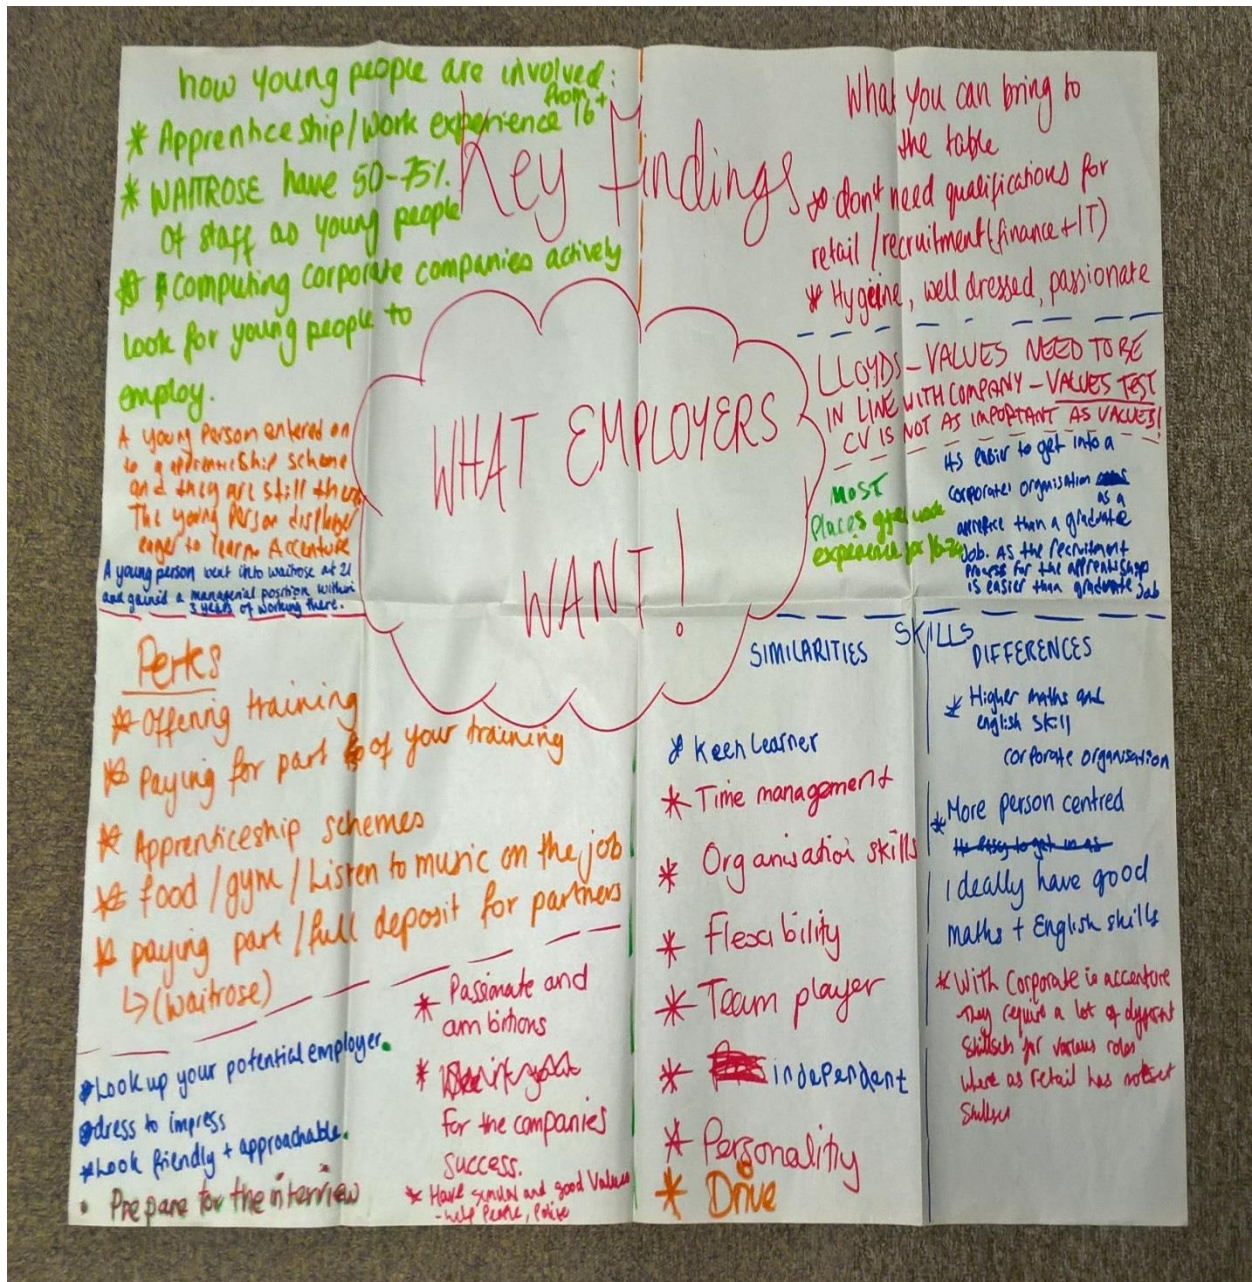 Key findings
how young people are involved:
* Apprenticeship/work experience from 16+
* WAITROSE have 50-75%
of staff as young people
* computing corporate companies actively
look for young people to
employ.
A young person entered on
to a apprenticeship scheme
and they are still there
The young person displayed
eager to learn Accenture
A young person went into waitrose at 21
and gained a managerial position within
3 years of working there.
What you can bring to
the table
* don't need qualifications for
retail / recruitment (finance + IT)
* Hygeine, well dressed, passionate
LLOYDS - VALUES NEED TO BE
IN LINE WITH COMPANY - VALUES TEST
CV IS NOT AS IMPORTANT AS VALUES!
MOST
places give work
experience for 16-24
its easier to get into a
corporate organisation
as a
than a graduate
Job. AS the recruitment
process for the
is easier than graduate Job
WHAT EMPLOYERS
WANT!
Perks
* Offering training
* paying for part of your training
* Apprenticeship schemes
* food / gym / Listen to music on the job
* paying part / full deposit for partners
↳ (waitrose)
* Look up your potential employer.
* dress to impress
* Look friendly + approachable.
• Prepare for the interview
* Passionate and
ambitions
*
for the companies
success.
* Have similar and good values
- help people, polite
SKILLS
SIMILARITIES
* keen learner
* Time management
* Organisation skills
* Flexibility
* Team player
* independent
* Personality
* Drive
DIFFERENCES
* Higher maths and
english skill
corporate organisation
* More person centred
Ideally have good
maths + English skills
* With Corporate ie accenture
they require a lot of different
skillsets for various roles
where as retail has set